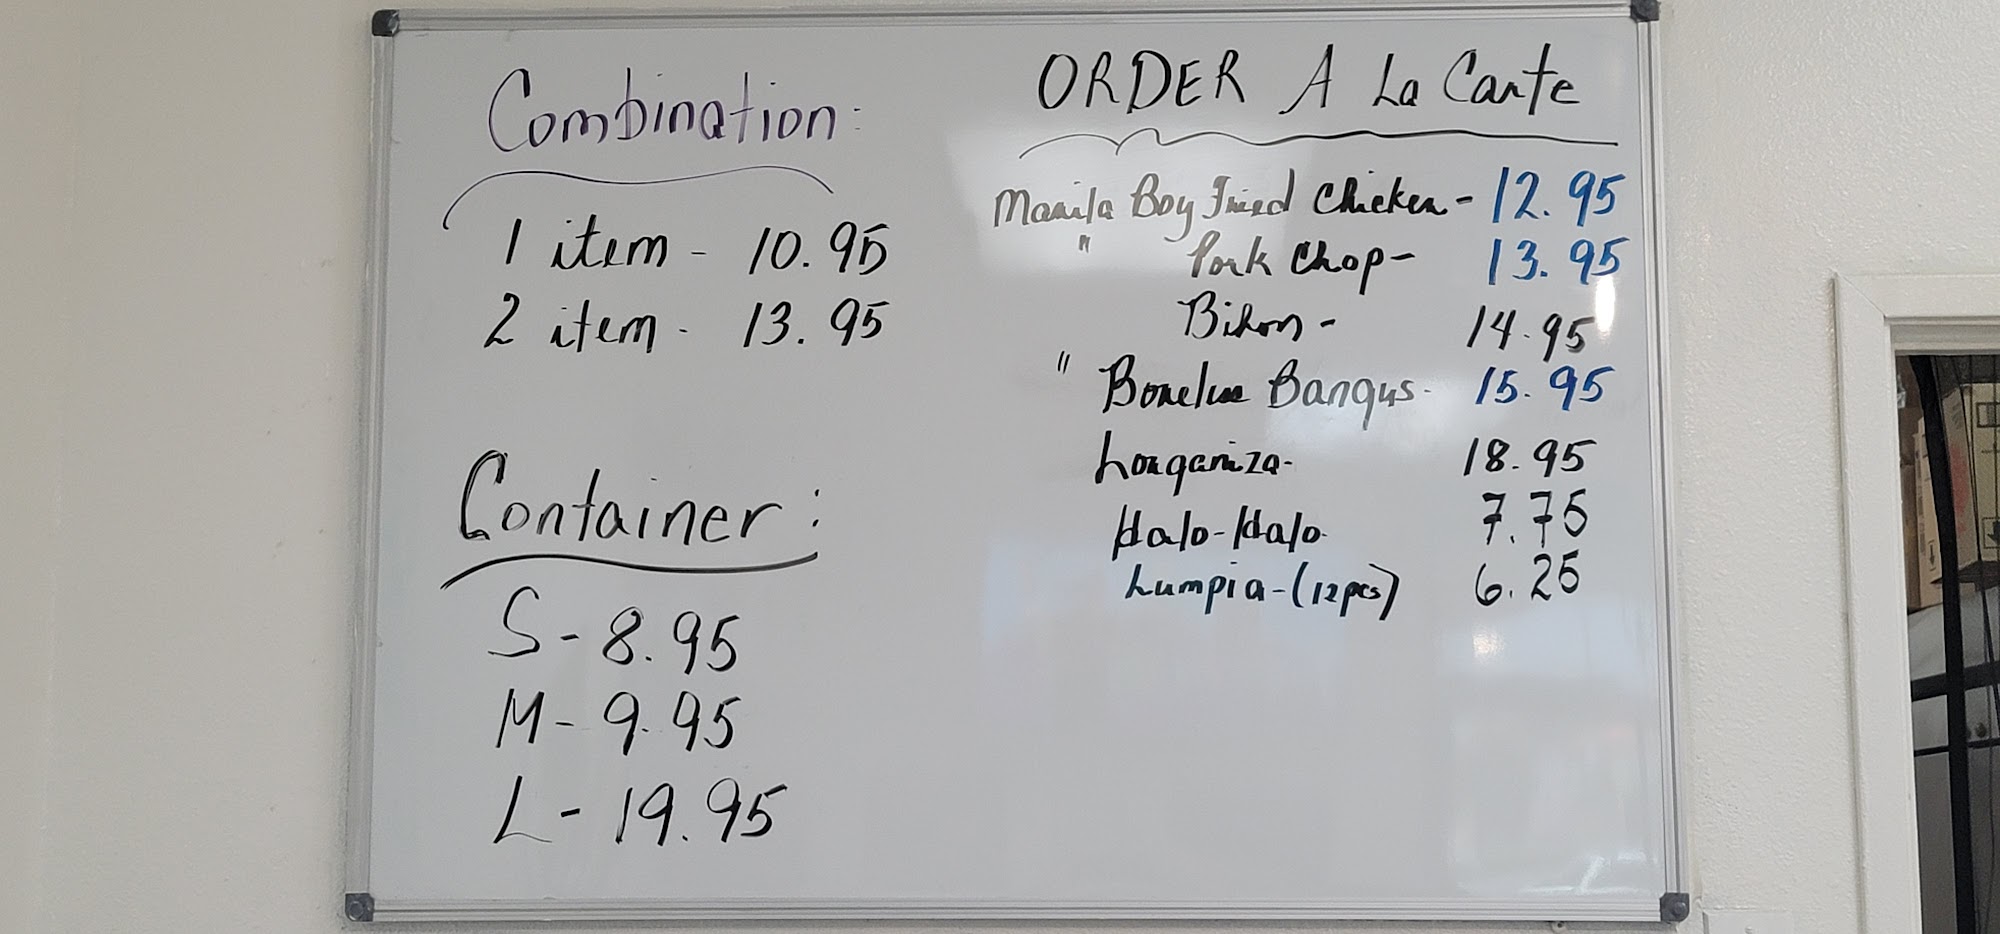 Combination:
1 item - 10.95
2 item - 13.95
Container:
S - 8.95
M - 9.95
L - 19.95
ORDER A La Carte
Manila Boy Fried Chicken - 12.95
" Pork Chop - 13.95
Bihon - 14.95
" Boneless Bangus - 15.95
Longaniza - 18.95
Halo-Halo 7.75
Lumpia - (12pcs) 6.25